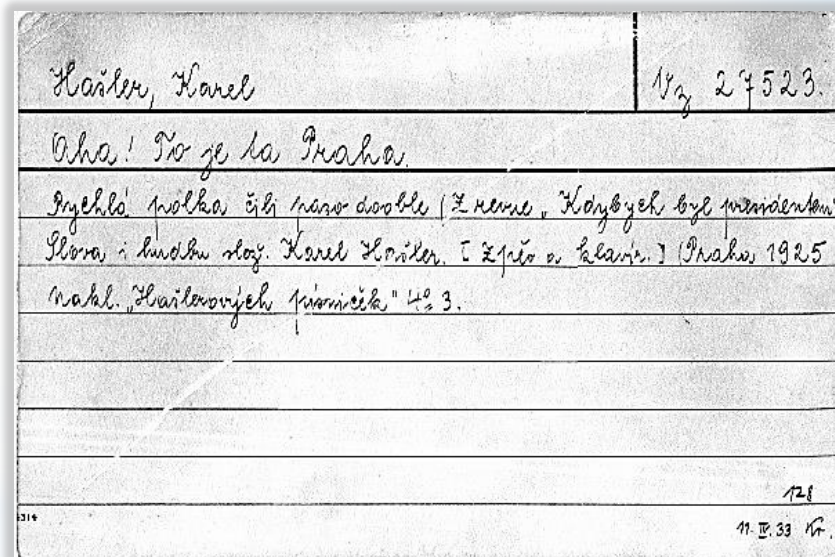 Hašler, Karel Vz 27523.
Aha! To je ta Praha.
Rychlá polka čili paso-dooble (Z revue „Kdybych byl presidentem"
Slova i hudbu slož. Karel Hašler. [Zpěv a klavír.] (Praha 1925
nakl. „Hašlerových písniček" 4° 3.
128
4314
11. IV. 33 Kr.